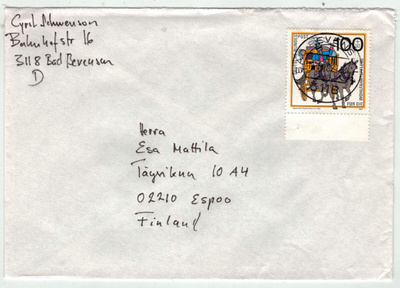 Cyril Schwenson
Bahnhofstr 16
3118 Bad Bevensen
D
100
3118
Herra
Esa Mattila
10 A4
02210 Espoo
Finland